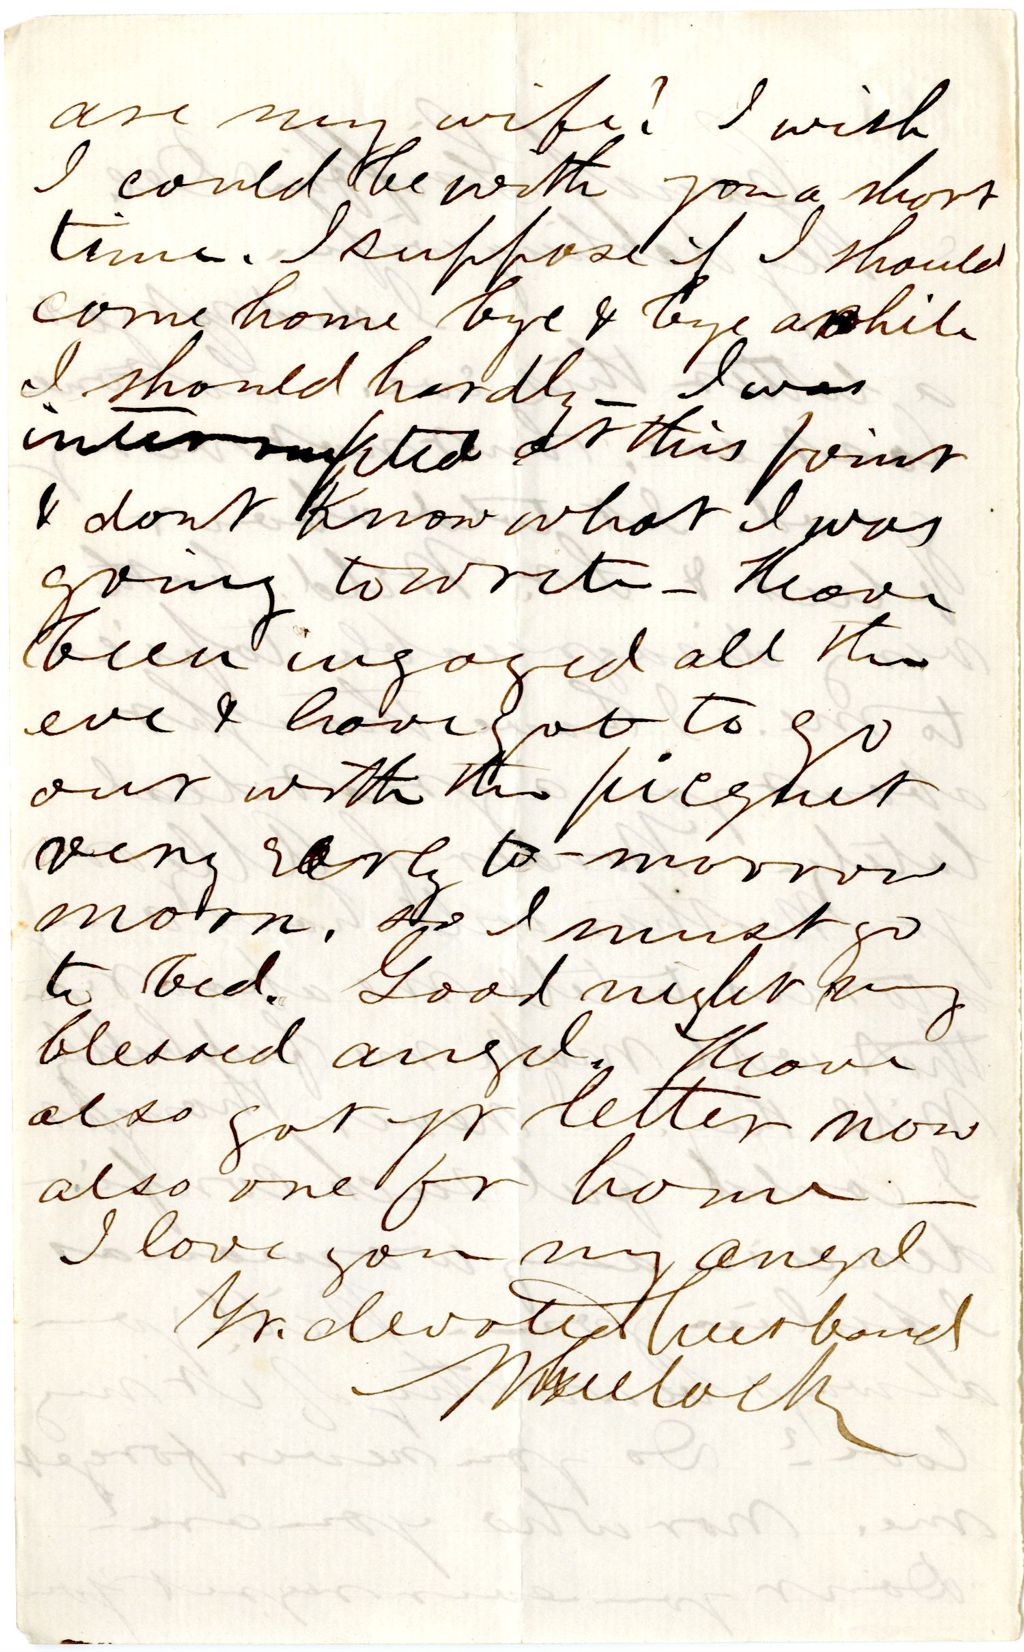 are my wife? I wish
I could be with you a short
time. I suppose if I should
come home bye & bye awhile
I should hardly – I was
interrupted at this point
& dont know what I was
going to write – I have
been ingaged all the
eve & have got to go
out with the picquet
very early to-morrow
morn. so I must go
to bed. Good night my
blessed angel. I have
also got yr letter now
also one fr home –
I love you my angel
Yr. devoted husband
Wheelock